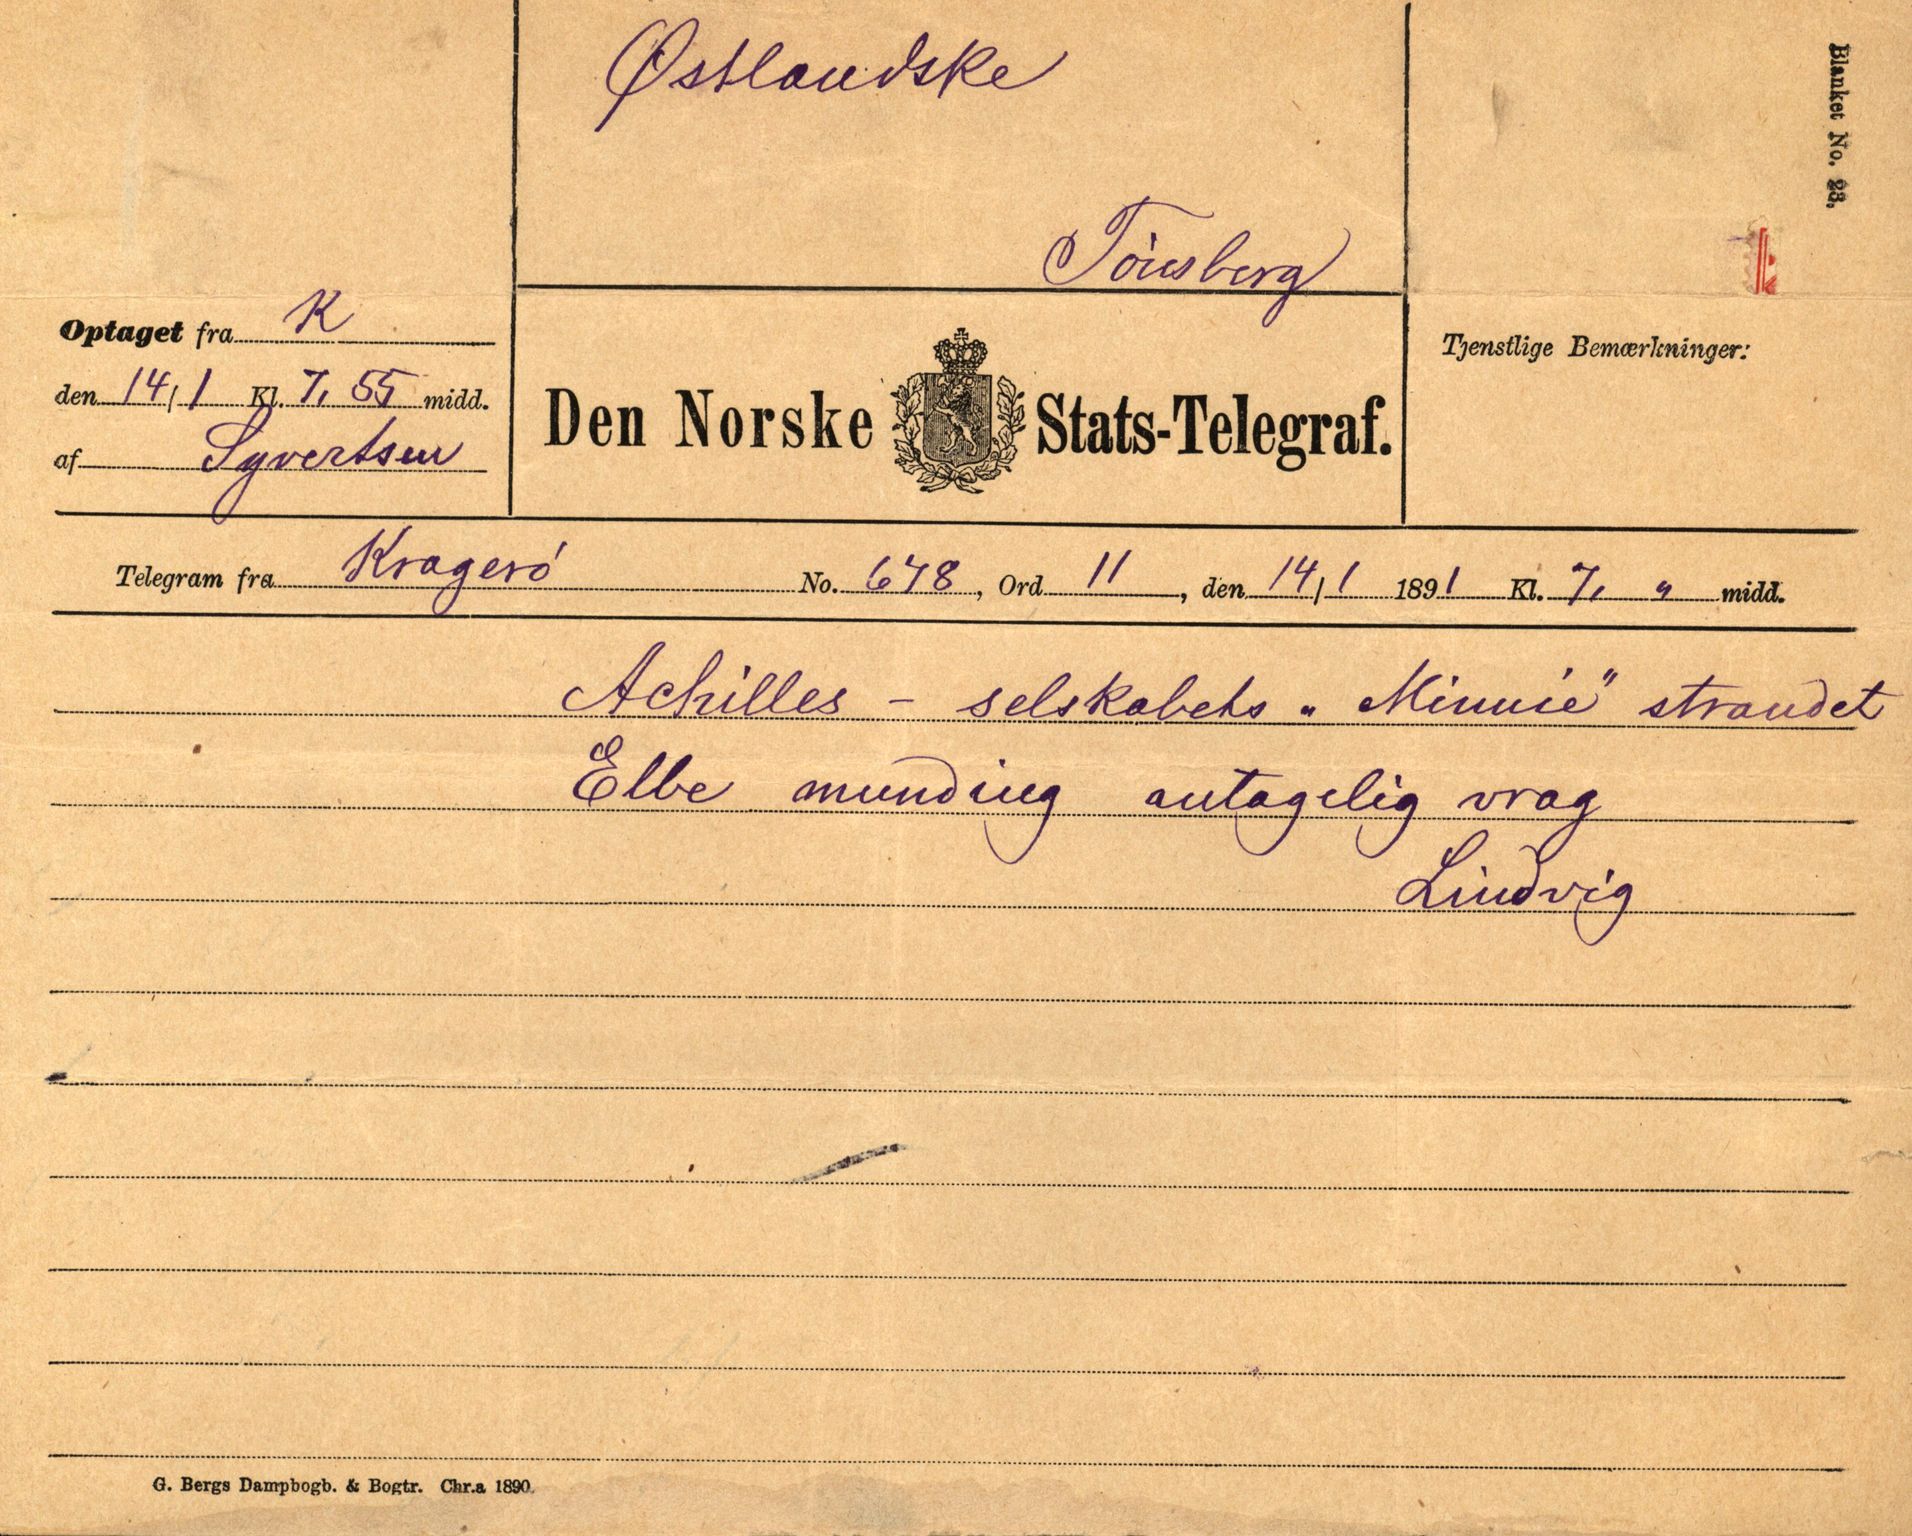 Østlandske
Blanket No. 23.
Tönsberg
Optaget fra K
den 14/1 Kl. 7, 55 midd.
af Syvertsen
Den Norske Stats-Telegraf.
Tjenstlige Bemærkninger:
Telegram fra Kragerö No. 678, Ord 11, den 14/1 1891 Kl. 7, " midd.
Achilles - selskabets „Minnie" strandet
Elbe munding antagelig vrag
Lindvig
G. Bergs Dampbogb. & Bogtr. Chr.a 1890.